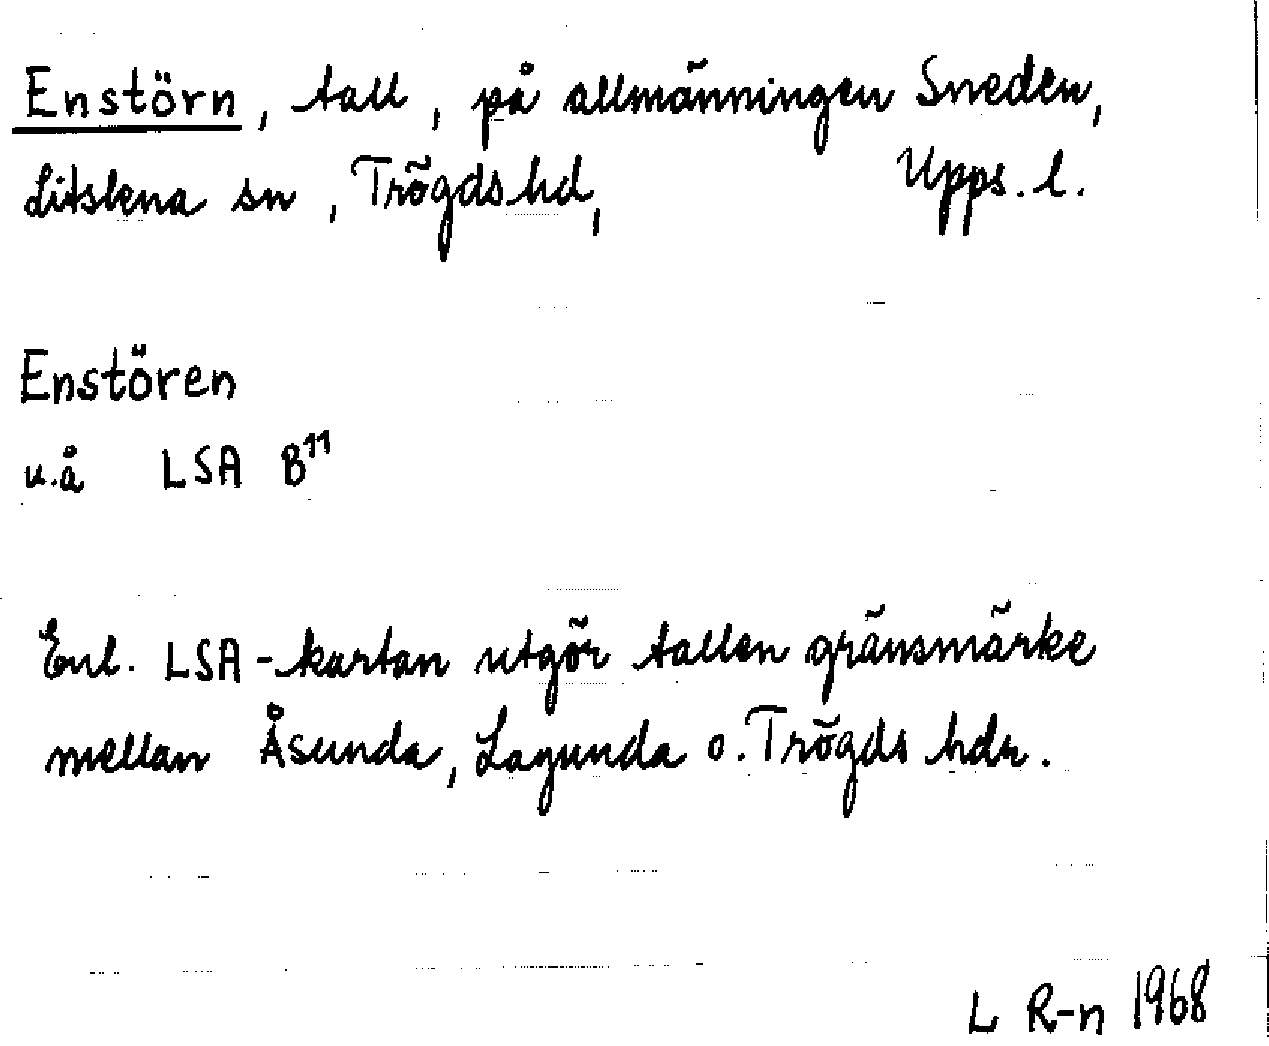 Enstörn, tall, på allmänningen Sneden,
Litslena sn, Trögds hd, Upps. l.
Enstören
u.å LSA B¹¹
Enl. LSA-kartan utgör tallen gränsmärke
mellan Åsunda, Lagunda o. Trögds hdr.
L R-n 1968